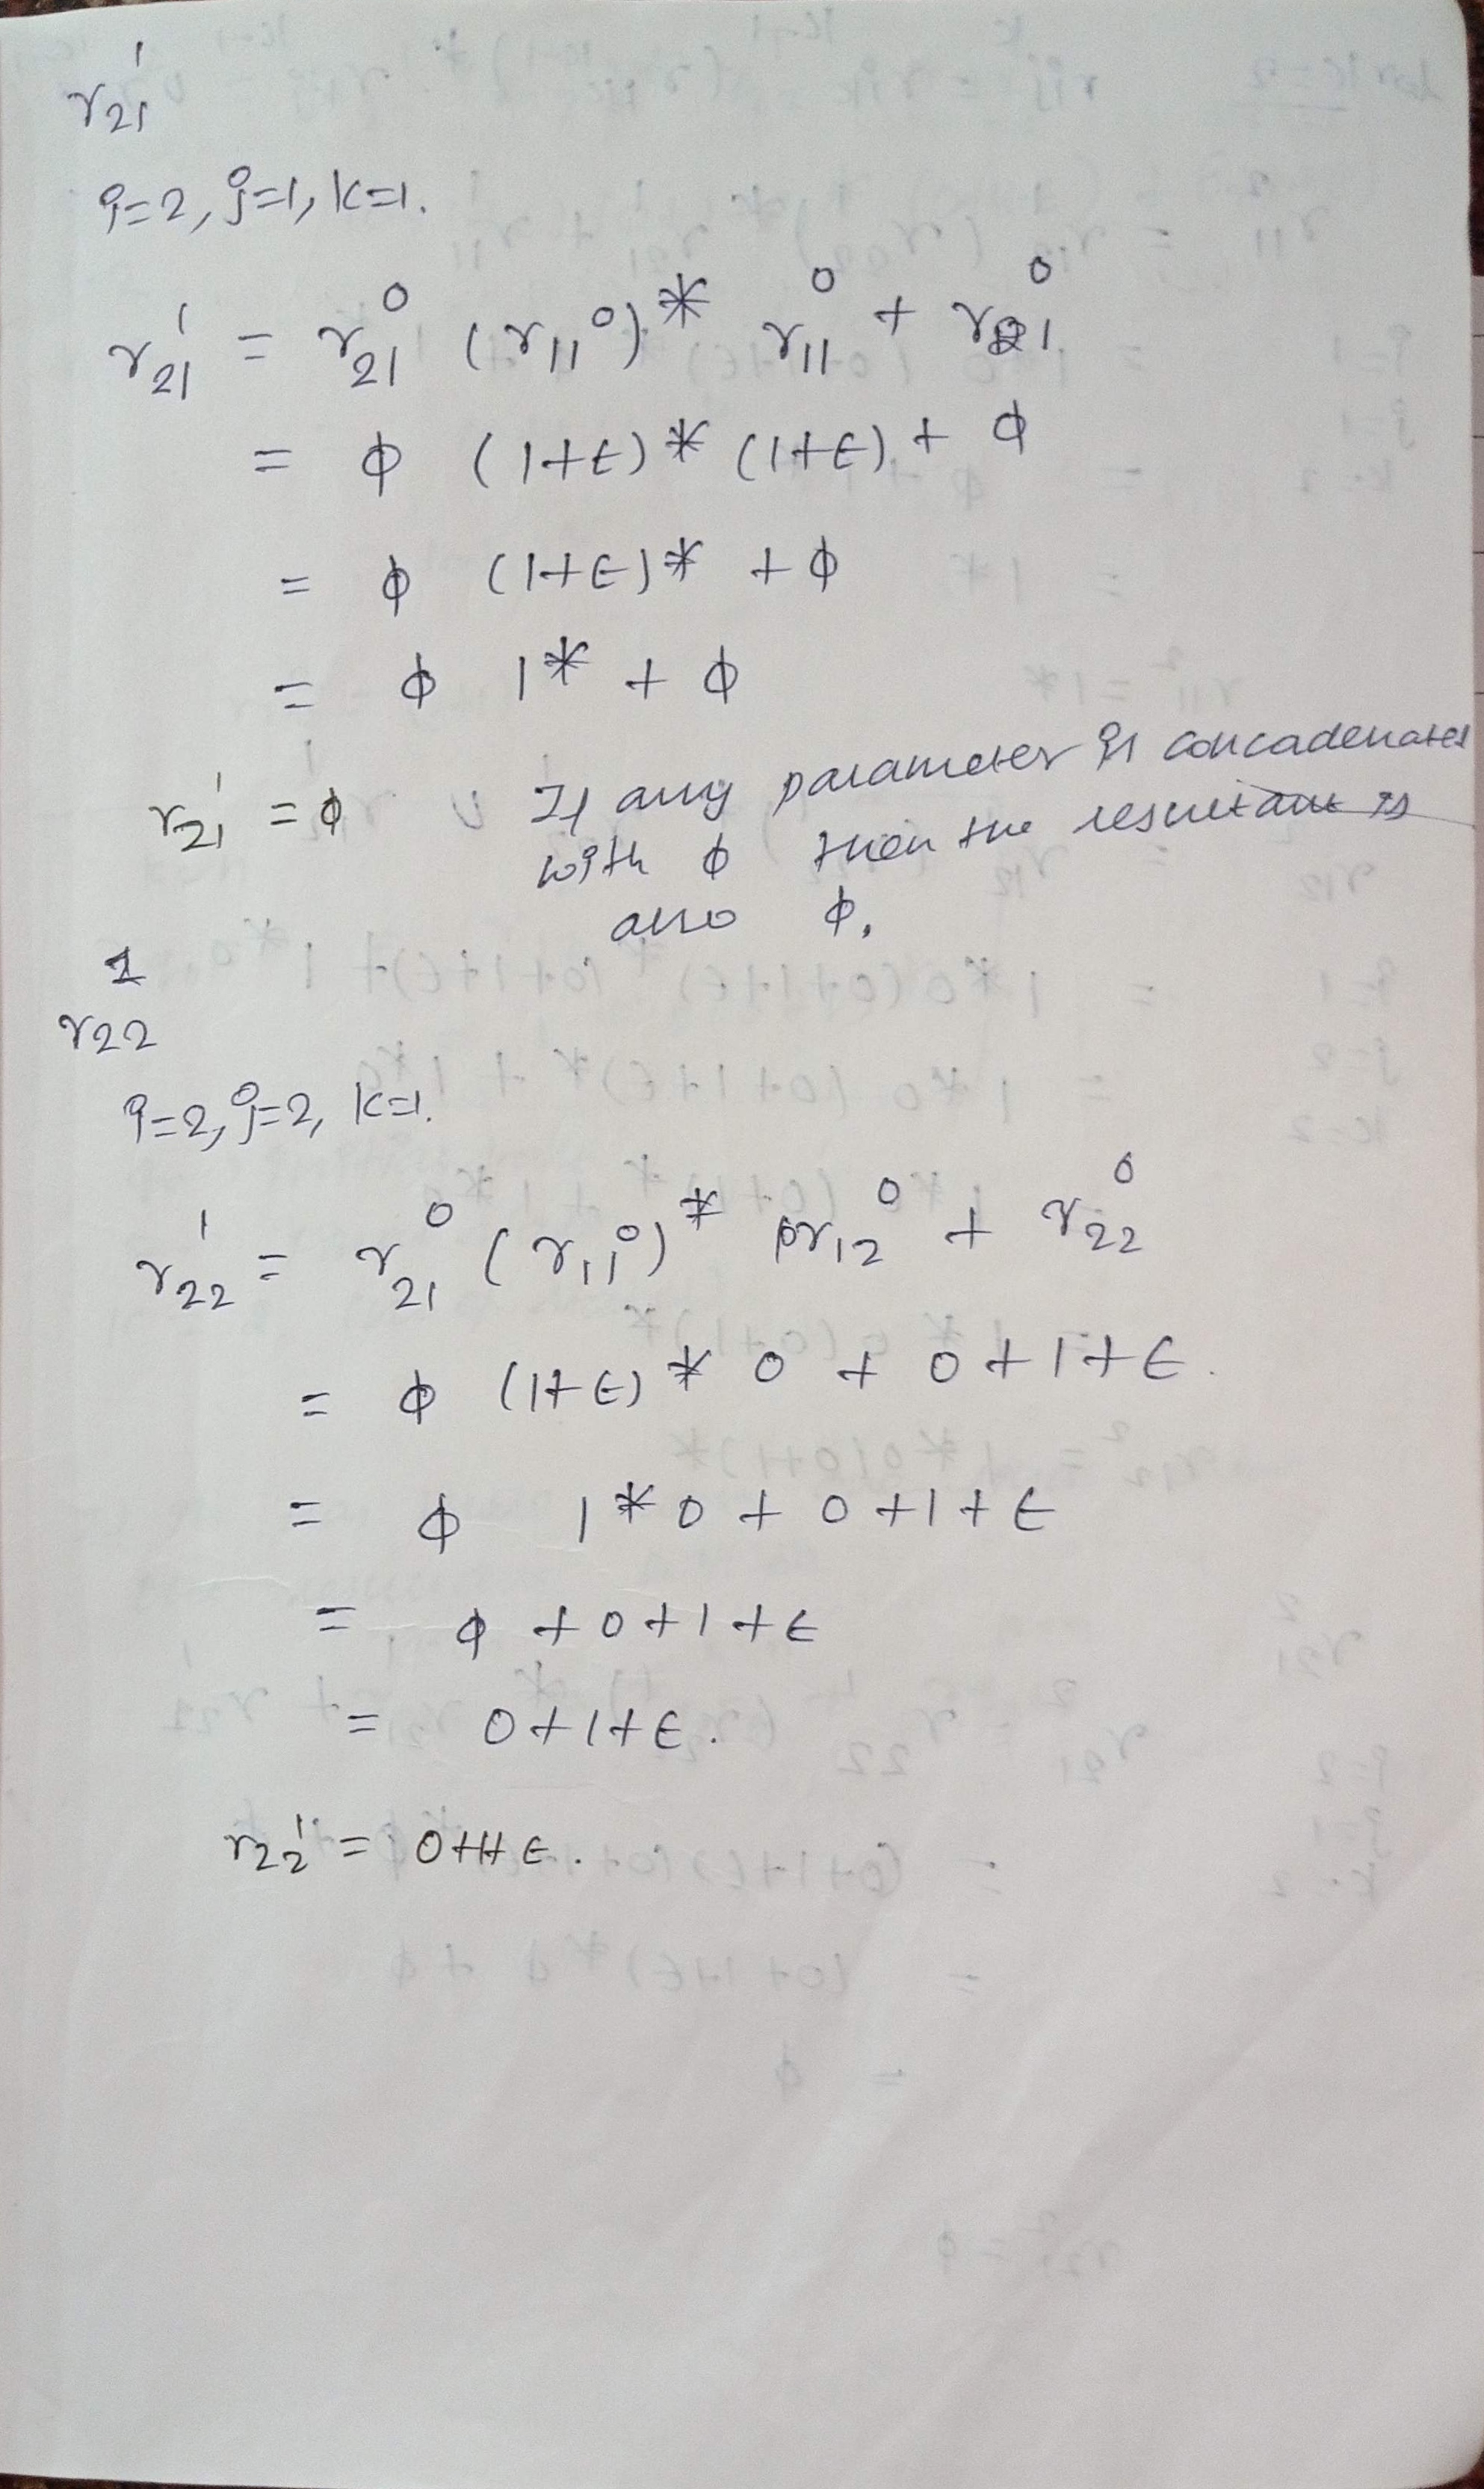 r₂₁¹
i=2, j=1, k=1.
r₂₁¹ = r₂₁⁰ (r₁₁⁰)* r₁₁⁰ + r₂₁⁰
= ϕ (1+ϵ)* (1+ϵ) + ϕ
= ϕ (1+ϵ)* + ϕ
= ϕ 1* + ϕ
r₂₁¹ = ϕ ∵ If any parameter is concadenated
with ϕ then the resultant is
also ϕ.
r₂₂¹
i=2, j=2, k=1.
r₂₂¹ = r₂₁⁰ (r₁₁⁰)* r₁₂⁰ + r₂₂⁰
= ϕ (1+ϵ)* 0 + 0+1+ϵ.
= ϕ 1*0 + 0+1+ϵ
= ϕ +0+1+ϵ
= 0+1+ϵ.
r₂₂¹ = 0+1+ϵ.